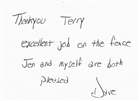 Thankyou Terry
excellent job on the fence
Jen and myself are both
pleased
Dave